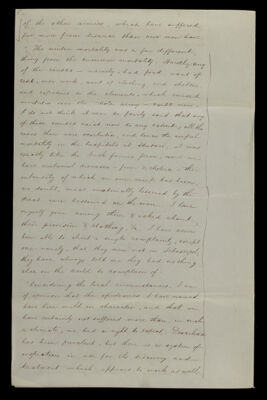 of the other armies, which have suffered
far more from disease than ever now have.
"The winter mortality was a far different
thing from the summer mortality. Hardly any
of the causes - namely, bad food, want of
rest, over work, want of clothing, and shelter,
and exposure to the elements, which caused
I do not think it can be fairly said that any
of these causes exist now to any extent; all the
mortality in the hospitals at Scutari, it was
exactly like the
have
intensity of which on our part has been,
no doubt, most materially lessened by the
great care bestowed on the men. I have
myself gone among them & asked about
their provision & clothing, &c. I have never
been able to elicit a single complaint, except
one namely, that they were not in Sebastopol,
they have always told me they had nothing
else in the world to complain of.
"Considering the local circumstances, I am
of opinion that the epidemics I have named
have been mild in character, and that we
have certainly not suffered more than, in such
a climate, we had a right to expect. Diarrhœa
has been prevalent, but there is no system of
inspection in use for its discovery and
treatment which appears to work so well,